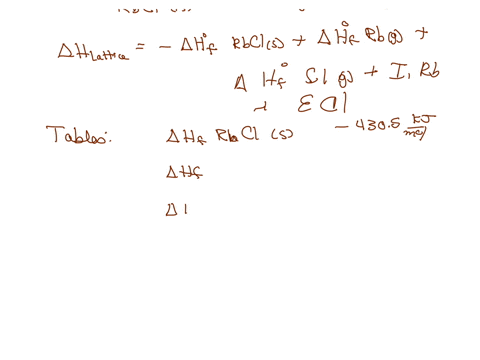 ΔH Lattice = − ΔH°f RbCl(s) + ΔH°f Rb(g) +
Δ H°f Cl (g) + I₁ Rb
+ E Cl
Tables: ΔHf RbCl (s) − 430.5 kJ/mol
ΔHf
Δ